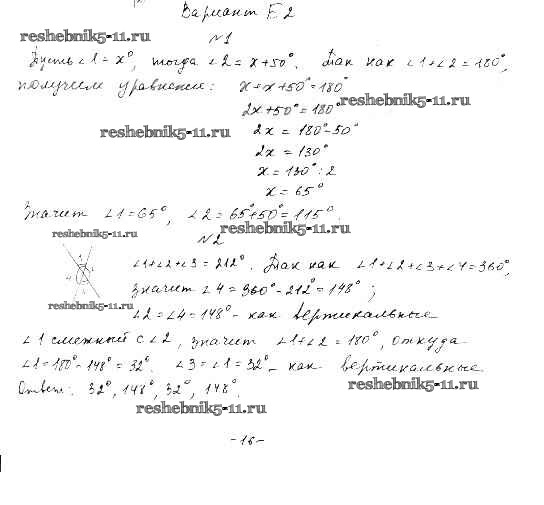 Вариант Б2
reshebnik5-11.ru
№1
Пусть ∠1=x°, тогда ∠2=x+50°. Так как ∠1+∠2=180°,
получим уравнение: x+x+50°=180°
reshebnik5-11.ru
2x+50°=180°
reshebnik5-11.ru
2x=180°-50°
2x=130°
x=130°:2
x=65°
Значит ∠1=65°, ∠2=65°+50°=115°.
reshebnik5-11.ru
reshebnik5-11.ru
№2
∠1+∠2+∠3=212°. Так как ∠1+∠2+∠3+∠4=360°,
значит ∠4=360°-212°=148°;
reshebnik5-11.ru
∠2=∠4=148° - как вертикальные
∠1 смежный с ∠2, значит ∠1+∠2=180°, откуда
∠1=180°-148°=32°. ∠3=∠1=32° - как вертикальные
Ответ: 32°, 148°, 32°, 148°.
reshebnik5-11.ru
reshebnik5-11.ru
-16-